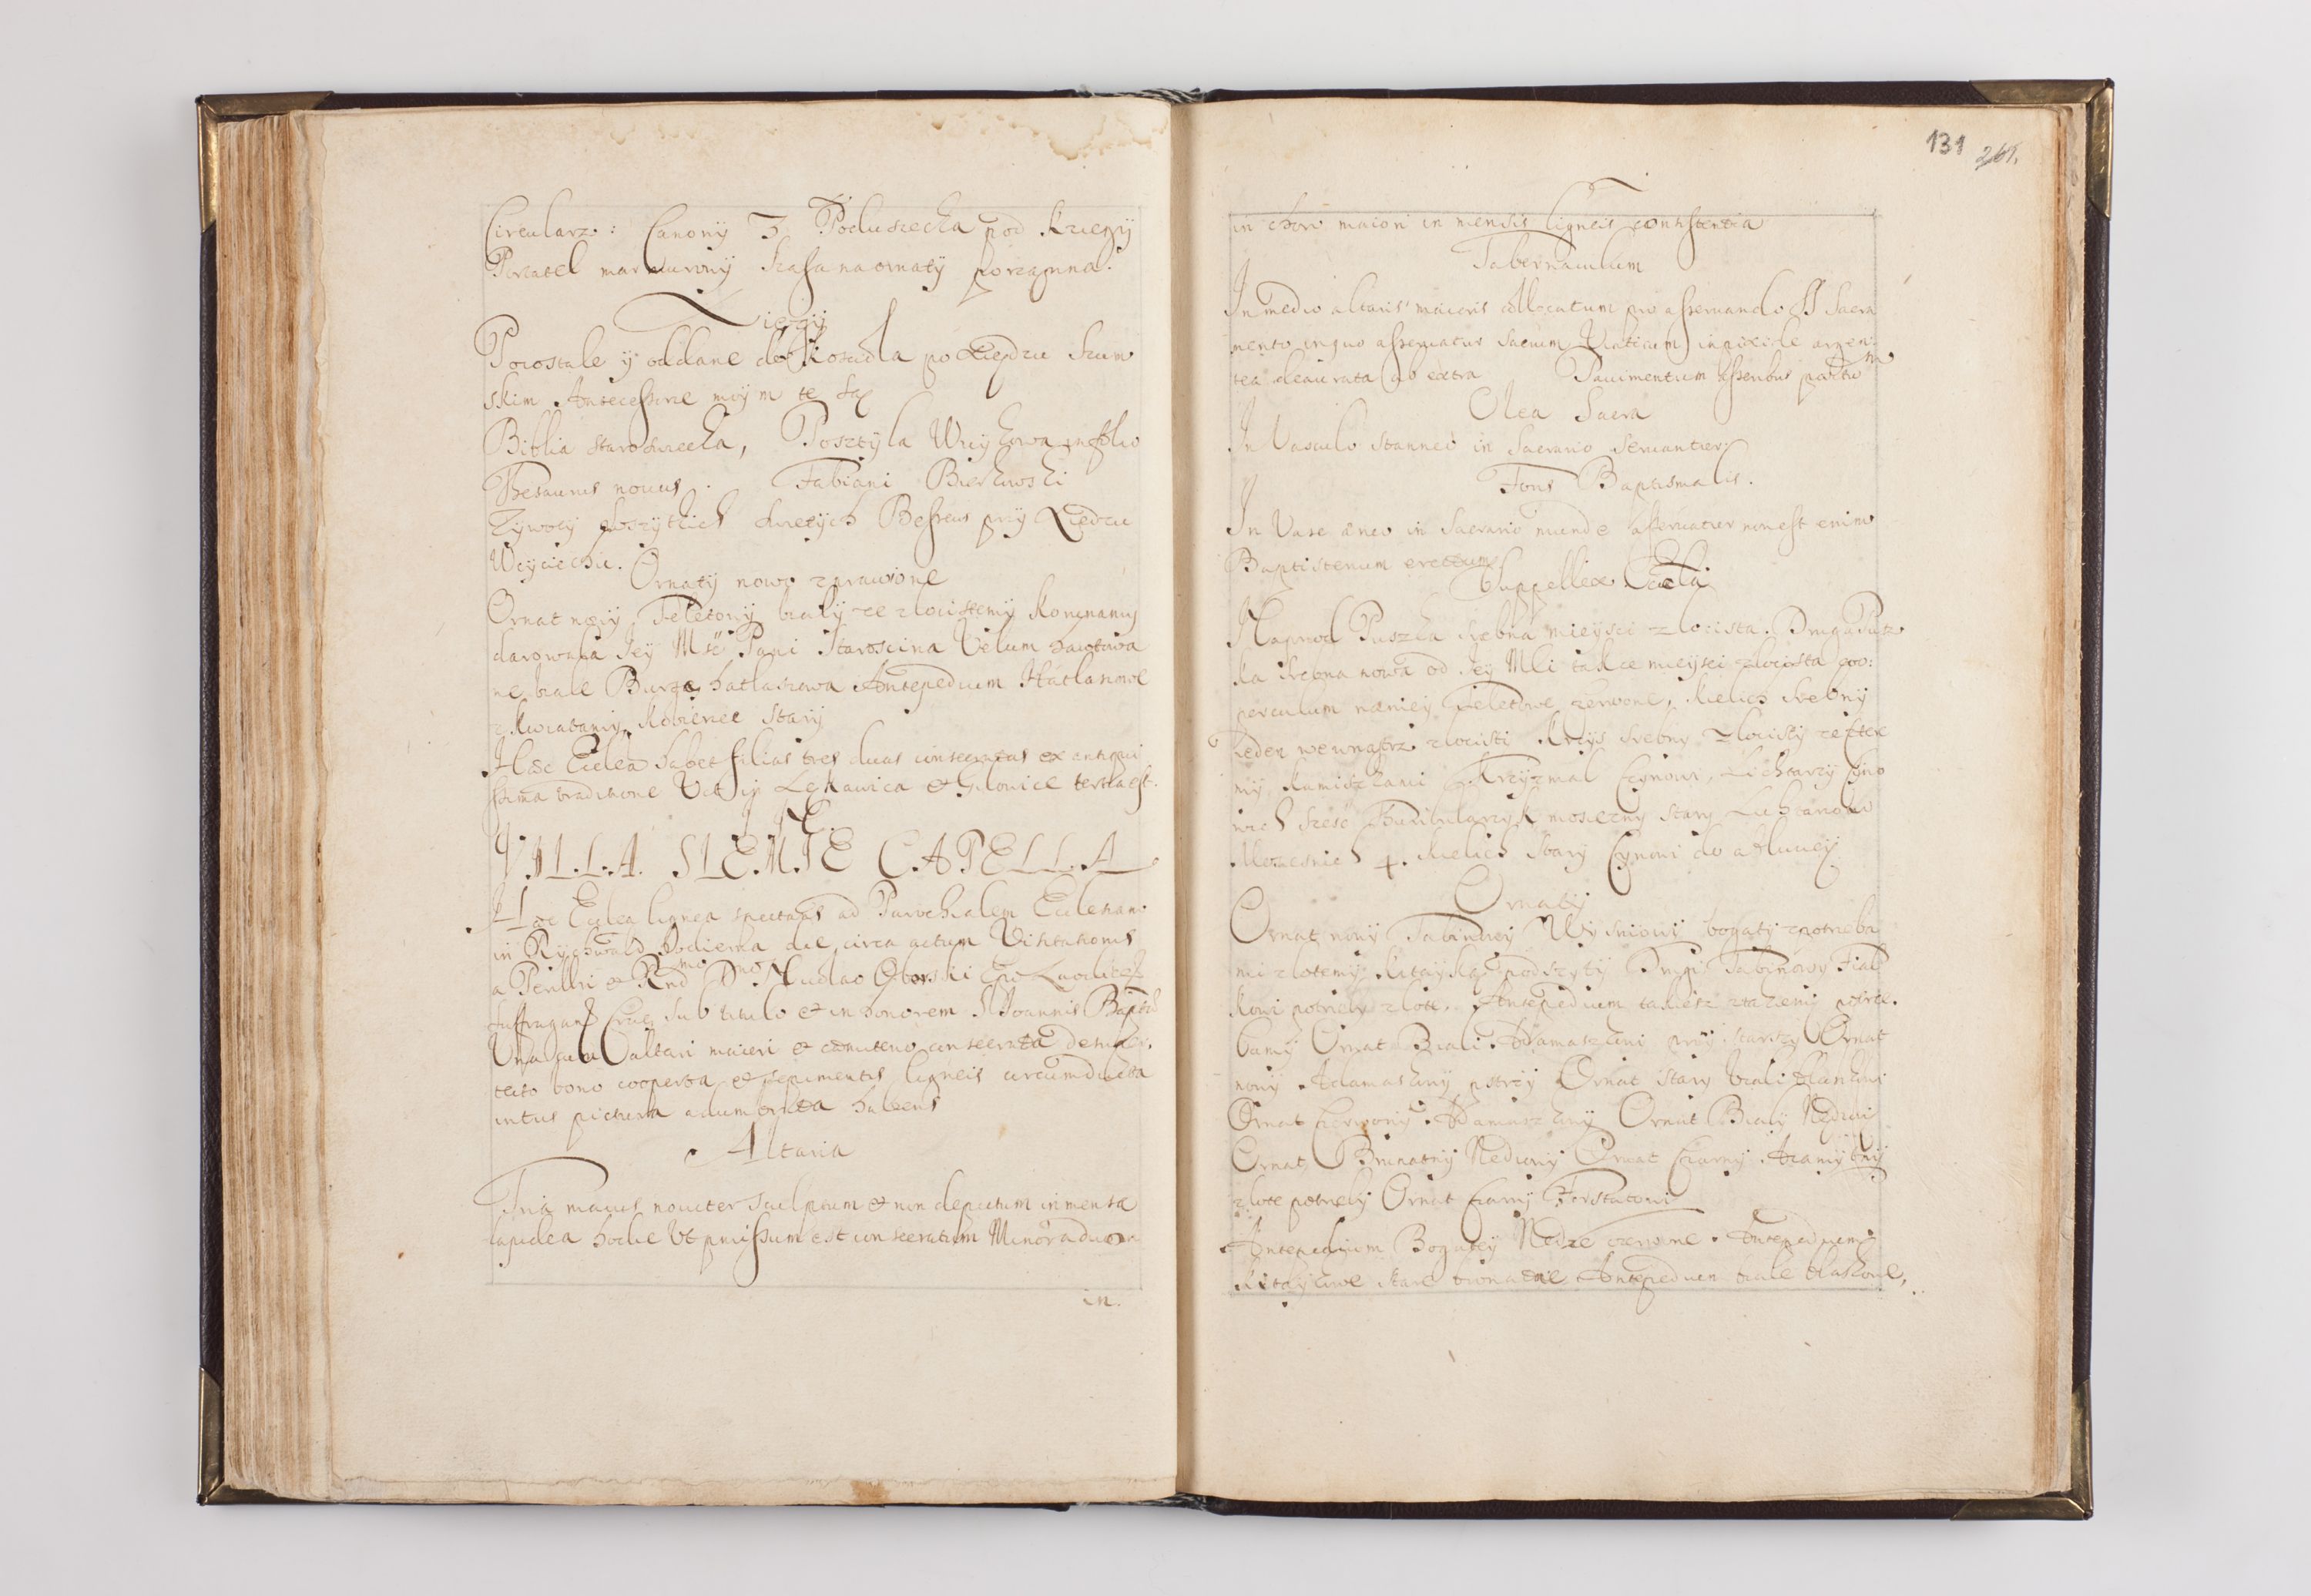 Circularz: Canony 3 Poduszecka pod Kziegy
Portatel marmurowy Szafa na ornaty porzadna.
Xiegy
Pozostale y oddane do Kosciola po Xiedzu Szum
skim Antecessorze moym te sa
Biblia staroswiecka, Posztyla Wuykowa in folio
Thesaurus nouus. Fabiani Birkowski
Zywoty wszytkich swietych Besseus przy Xiedzu
Woyciechu.
Ornaty nowo zprawione
Ornat nowy Teletowy bialy ze zlocistemy Koronamy
darowala Jey Msć Pani Staroscina Velum hawtowa
ne biale Bursa hatlasowa Antepedium Hatlasowe
z Kwiatamy, Kobierzec stary
Hæc Ecclea habet filias tres duas consecratas ex antiqui
ssima traditione Vt in Lekawica et Gilowice tertia est.
VILLA SLEMIE CAPELLA
Hæc Ecclea lignea spectans ad Parochialem Ecclesiam
in Rychwald hodierna die, circa actum Visitationis
a Perillri et Rndmo Dno Nicolao Oborski Epo Laodicen
Suffragan Crac sub titulo et in honorem S Joannis Baptæ
Una cum altari maiori et cæmiterio consecrata
tecto bono cooperta et sepimentis ligneis circumducta
intus pictura adumbrata habens
Altaria
Tria maius nouiter sculptum et non depictum in mensa
lapidea hodie Vt præmissum est consecratum Minora duo
in.
131 261.
in choro maiori in mensis ligneis consistentia
Tabernaculum
In medio altaris maioris collocatum pro asseruando SS Sacra
mento in quo asseruatur sacrum Viaticum in pixide argen
tea deaurata ab extra Pauimentum asseribus
Olea Sacra
In Vasculo stanneo in Sacrario seruantur
Fons Baptismalis.
In Vase æneo in Sacrario munde asseruatur non est enim
Baptisterium erectum
Suppellex Eccla
Naprzod Puszka srebna mieysci zlocista. Druga Pusz
ka srebna nowa od Jey Mci takze mieysci zlocista coo:
perculum na niey Teletowe czerwone, Kielich srebny
ieden wewnatrz zlocisti Krzys srebny zlocisty ze
my Kamiszkami Krzyzmal Cynowi, Lichtarzy Cyno
wich szesc Turibularzyk mosiezny stary Lichtarzow
Mosiesnich 4. Kielich stary Cynowi do abluciey
Ornaty
Ornat nowy Tabinowy Wisniowy bogaty z potrzeba
mi zlotemy Kitayką podszyty Drugi Tabinowy Fial
kowi potrzeby zlote, Antepedium takiesz z takiemi potrze.
bamy Ornat Biali Adamaszkowi starszy Ornat
nowy Adamaszkowy pstrzy Ornat stary biali
Ornat Czerwony Adamaszkowy Ornat Bialy Nedzni
Ornat Brunatny Nedzny Ornat Czarny Axamytny
zlote potrzeby Ornat Czarny Forstatowi
Antepedium Bogatey Nedze czerwone. Antepedium
Kitaykowe stare brunatne Antepedium biale